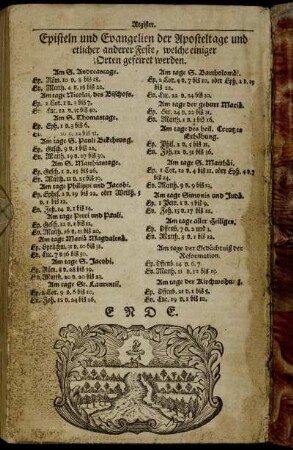 Register.
Episteln und Evangelien der Aposteltage und
etlicher anderer Feste, welche einiger
Orten gefeiret werden.
Am S. Andreastage.
Ep. Röm. 10 v. 8 bis 18.
Ev. Matth. 4 v. 18 bis 22.
Am tage Nicolai, des Bischofs.
Ep. 2 Cor. 1 v. 3 bis 7.
Ev. Luc. 12 v.
Am S. Thomastage.
Ep. Eph. 1 v. 3 bis 6.
Ev. 24 bis 31.
Am tage S. Pauli Bekehrung.
Ep. Gesch. 9 v. 1 bis 22.
Ev. Matth. 19 v. 27 bis 30.
Am S. Matthiastage.
Ep. Gesch. 1 v. 15 bis 26.
Ev. Matth. 11 v. 25 bis 30.
Am tage Philippi und Jacobi.
Ep. Ephes. 2 v. 19 bis 22, oder
Ev. Joh. 14 v.
Am tage Petri und Pauli.
Ep. Gesch. 12 v. 1 bis
Ev. Matth. 16 v. 13 bis 20.
Am tage Mariä Magdalenä.
Ep. Sprüchw. 31 v. 10 bis 31.
Ev. Luc. 7 v 36 bis 50.
Am tage S. Jacobi.
Ep. Röm. 8 v. 28 bis 39.
Ev. Matth. 20 v. 20 bis 23.
Am tage St. Laurentii.
Ep. 2 Cor. 9 v. 6 bis 10.
Ev. Joh. 12 v. 24 bis 26.
Am tage S. Bartholomäi.
Ep. 2 Cor. 4 v. 7 bis 10, oder Eph. 2 v. 19
bis 22.
Ev. Luc. 22 v. 24 bis 30.
Am tage der geburt Mariä.
Ep. Sir. 24 v. 22 bis 31.
Ev. Matth. 1 v. 1 bis 16.
Am tage des heil. Creutzes
Erhöhung.
Ep. Phil. 2 v. 5 bis 11.
Ev. Joh. 12 v. 31 bis
Am tage S. Matthäi.
Ep. 1 Cor. 12 v. 4 bis oder Eph. 4 v. 7
bis 14.
Ev. Matth. 9 v. 9 bis 13.
Am tage Simonis und Judä.
Ep. 1 Petr. 1 v. 3 bis 9.
Ev. Joh. 15 v. 17 bis 21.
Am tage aller Heiligen.
Ep. Offenb. 7 v. 2 und 3.
Ev. Matth. 5 v. 1 bis 12.
Am tage der Gedächtniß der
Reformation.
Ep. Offenb. 14 v. 6. 7.
Ev. Matth. 11 v. 12 bis 15.
Am tage der Kirchweihung.
Ep. Offenb. 21 v. 1 bis 5.
Ev. Luc. 19 v. 1 bis 10.
E N D E.